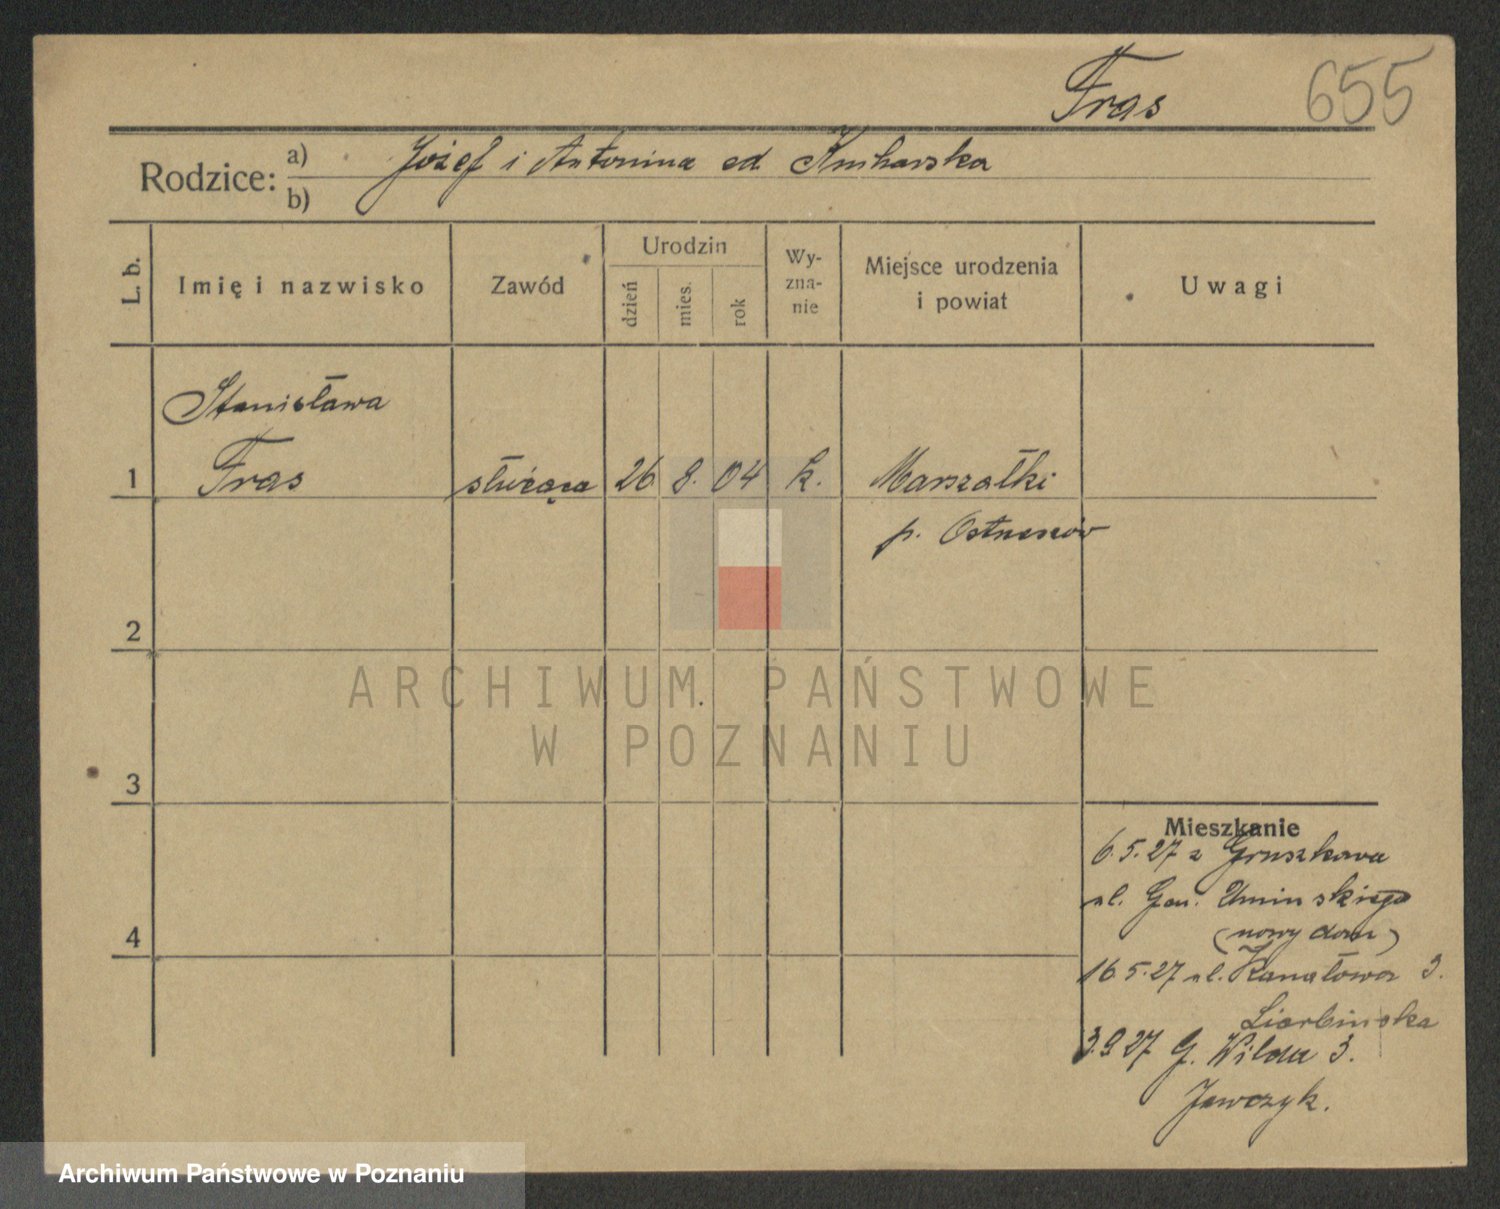 Fras 655
Rodzice: a) Józef i Antonina ed. Kucharska
b)
L. b. Imię i nazwisko Zawód Urodzin dzień mies. rok Wy-zna-nie Miejsce urodzenia i powiat Uwagi
Stanisława
1 Fras służąca 26 8. 04 k. Marszałki
p. Ostrzeszów
2
ARCHIWUM PAŃSTWOWE
W POZNANIU
3
Mieszkanie
6.5.27 z Gruszkowa
ul. Gen. Umińskiego
4 (nowy dom)
16.5.27 ul. Kanałowa 3.
3.9 27 G. Wilda 3.
Archiwum Państwowe w Poznaniu